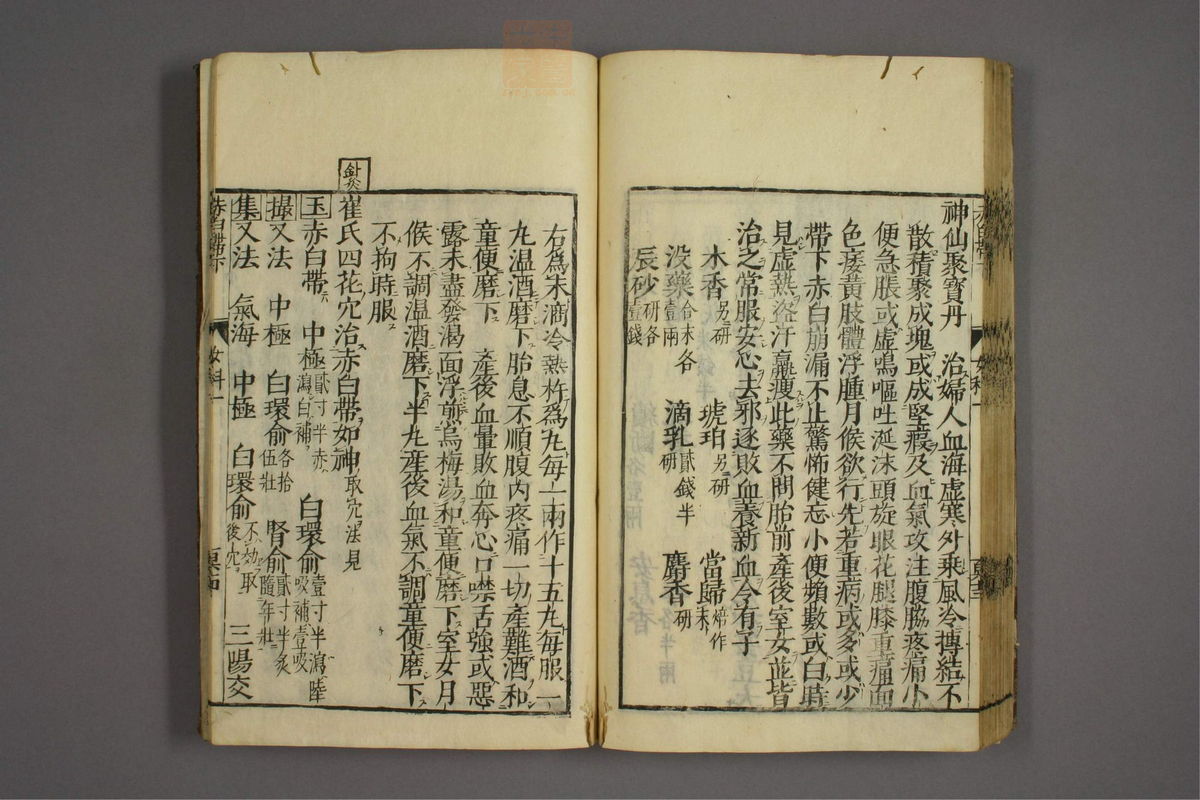 神仙聚寶丹 治婦人血海虛寒外乘風冷搏結不
散積聚成塊或成堅瘕及血氣攻注腹脇疼痛小
便急脹或虛鳴嘔吐涎沫頭旋眼花腿膝重痛面
色痿黃肢體浮腫月候欲行先若重病或多或少
帶下赤白崩漏不止驚怖健忘小便頻數或白時
見虛熱盜汗羸瘦此藥不問胎前產後室女並皆
治之常服安心去邪逐敗血養新血令有子
木香另研 琥珀另研 當歸焙作末
没藥壹兩合末各 滴乳貳錢半研 麝香研
辰砂研各壹錢
右為末滴冷熱杵為丸每一兩作十五丸每服一
丸溫酒磨下胎息不順腹內疼痛一切產難酒和
童便磨下 產後血暈敗血奔心口噤舌強或惡
露未盡發渴面浮煎烏梅湯和童便磨下室女月
候不調溫酒磨下半丸產後血氣不調童便磨下
不拘時服
針灸
崔氏四花穴治赤白帶如神取穴法見
玉 赤白帶 中極貳寸半赤瀉白補 白環俞壹寸半瀉陸吸補壹吸
撮 又法 中極 白環俞各拾伍壯 腎俞貳寸半灸隨年壯
集 又法 氣海 中極 白環俞不効取後穴 三陽交
赤白帶下 女科一